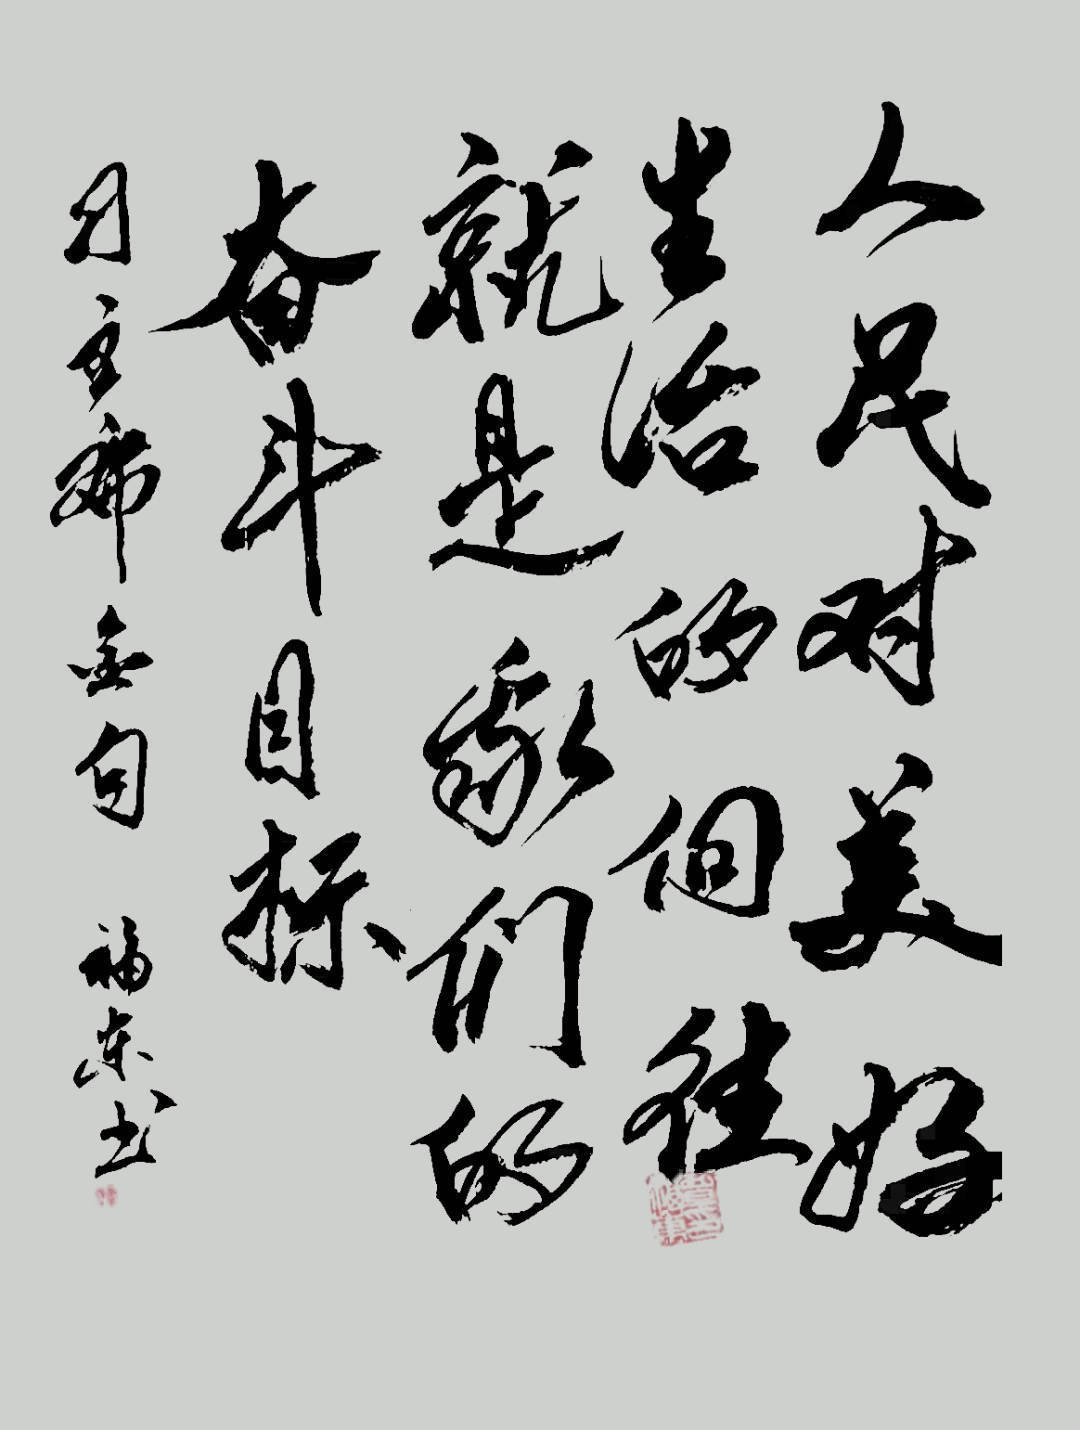 人民对美好
生活的向往
就是我们的
奋斗目标
习主席金句 福东书